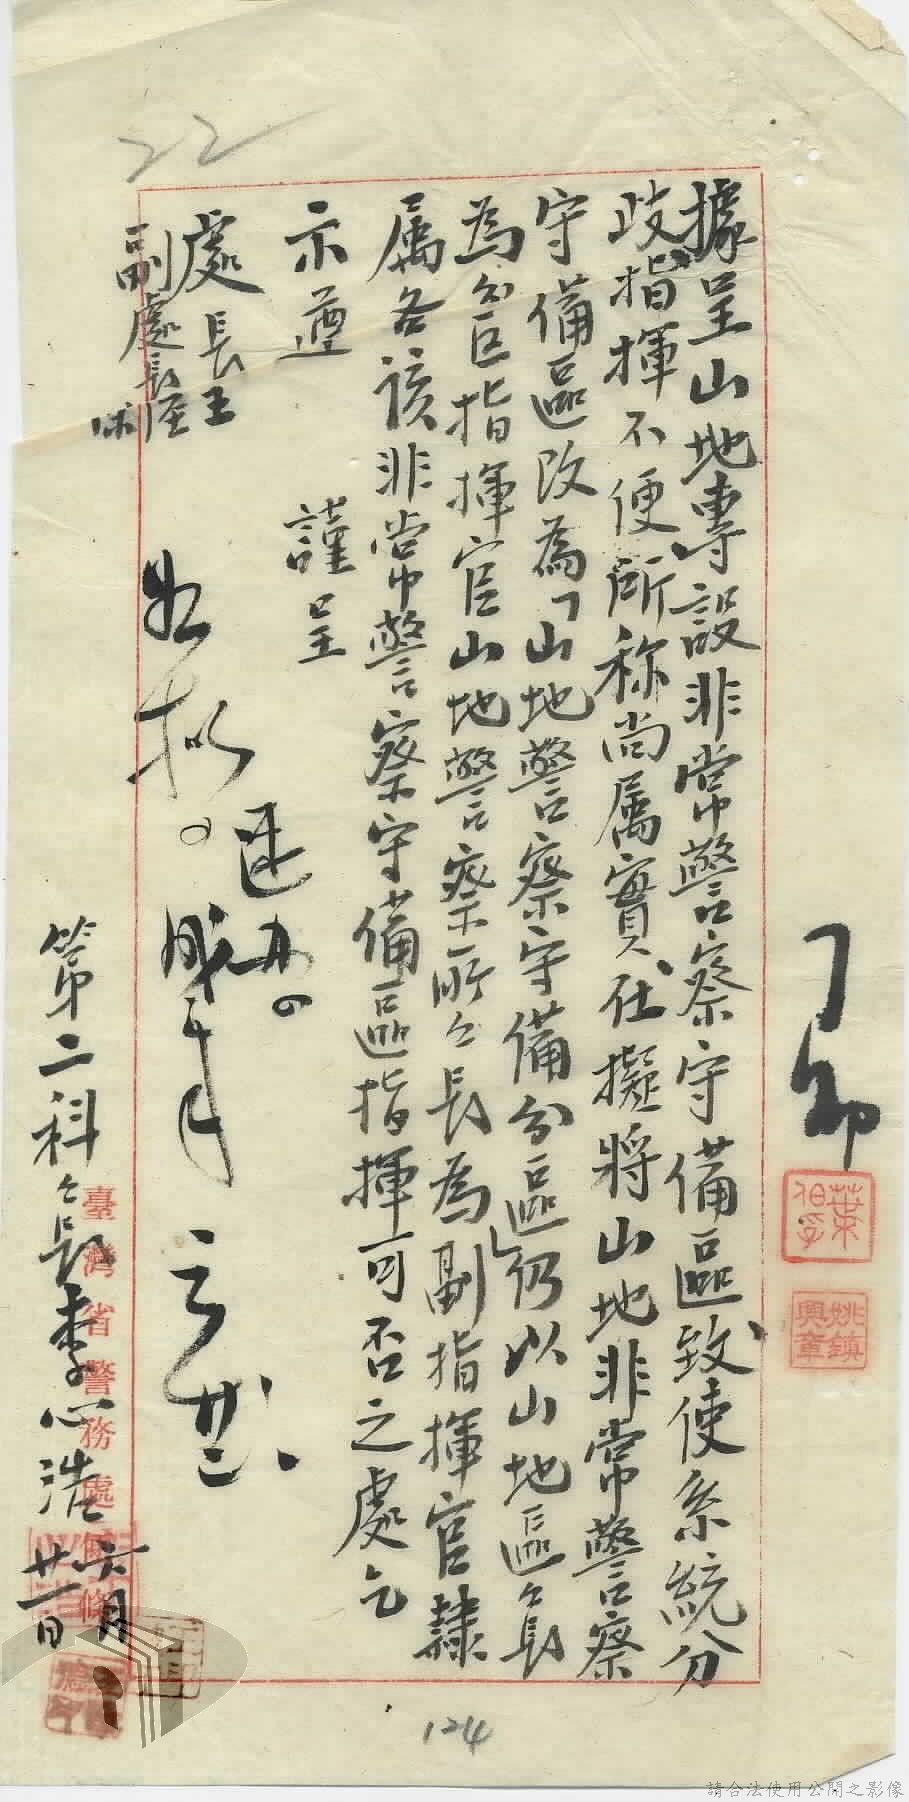 22
據呈山地專設非常警察守備區致使系統分
歧指揮不便所称尚屬實在擬將山地非常警察
守備區改為「山地警察守備分區」仍以山地區々長
為分區指揮官山地警察所々長為副指揮官隸
屬各該非常警察守備區指揮可否之處乞
示遵
謹呈
處長王
副處長
如擬。
速辦。
第二科々長李心浩
六月
廿一日
臺灣省警務處
葉伯孚
姚鎮興章
124
請合法使用公開之影像